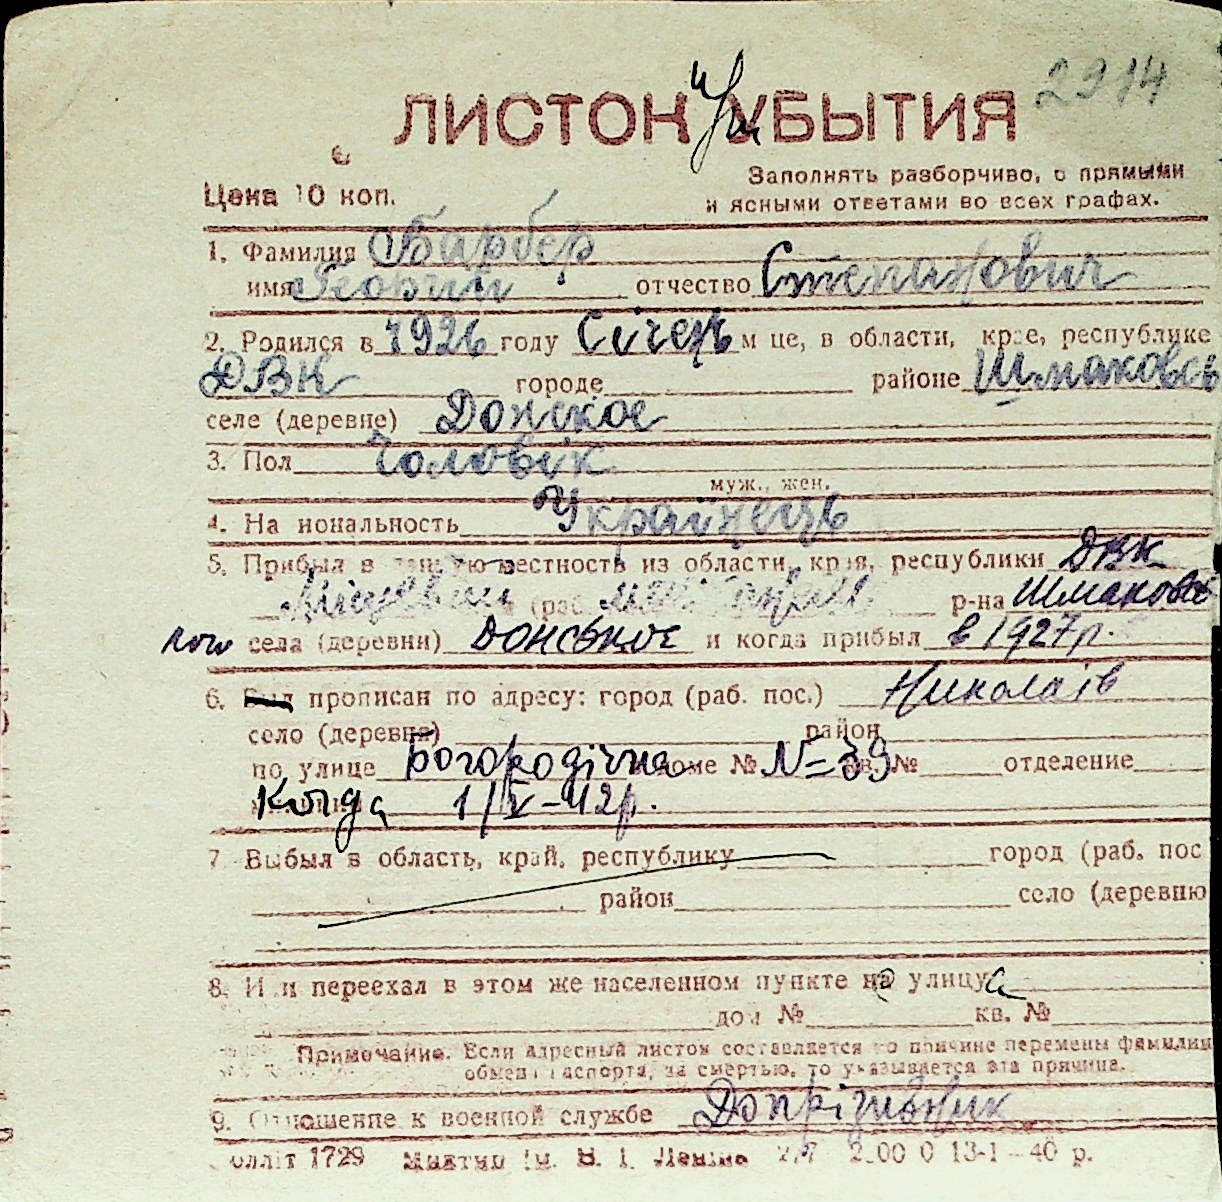 2914
ЛИСТОК УБЫТИЯ
при
Цена 10 коп.
Заполнять разборчиво, с прямыми
и ясными ответами во всех графах.
1. Фамилия Барбер
имя Георгий отчество Степанович
2. Родился в 1926 году Січень м це, в области, крае, республике
ДВК городе районе Шмаковсь
селе (деревне) Донское
3. Пол Чоловік
муж., жен.
4. На иональность Українець
5. Прибыл в данную местность из области, края, республики ДВК
Місцевий (раб. мешканець р-на Шмаковсь
кого села (деревни) Донськое и когда прибыл в 1927 р.
6. Был прописан по адресу: город (раб. пос.) Николаів
село (деревня) район
по улице Богородічна доме № N=39 кв. № отделение
Когда 1/V-42р.
7 Выбыл в область, край, республику город (раб. пос
район село (деревню
8. Или переехал в этом же населенном пункте на улицу
дом № кв. №
Примечание. Если адресный листок составляется по причине перемены фамилии
обмен паспорта, за смертью, то указывается эта причина.
9. Отношение к военной службе Допрізивник
оллiт 1729 ім. В. І. Леніна 2.00 0 13-1—40 р.